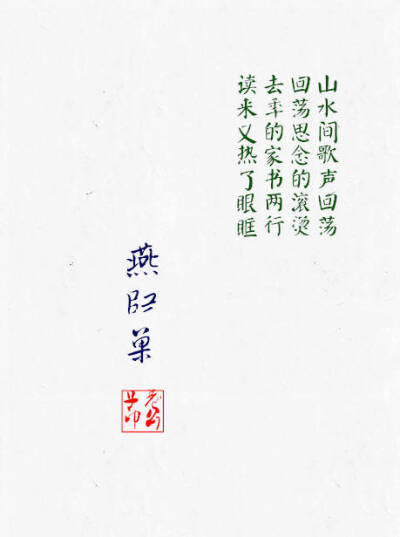 山水间歌声回荡
回荡思念的滚烫
去年的家书两行
读来又热了眼眶
燕归巢